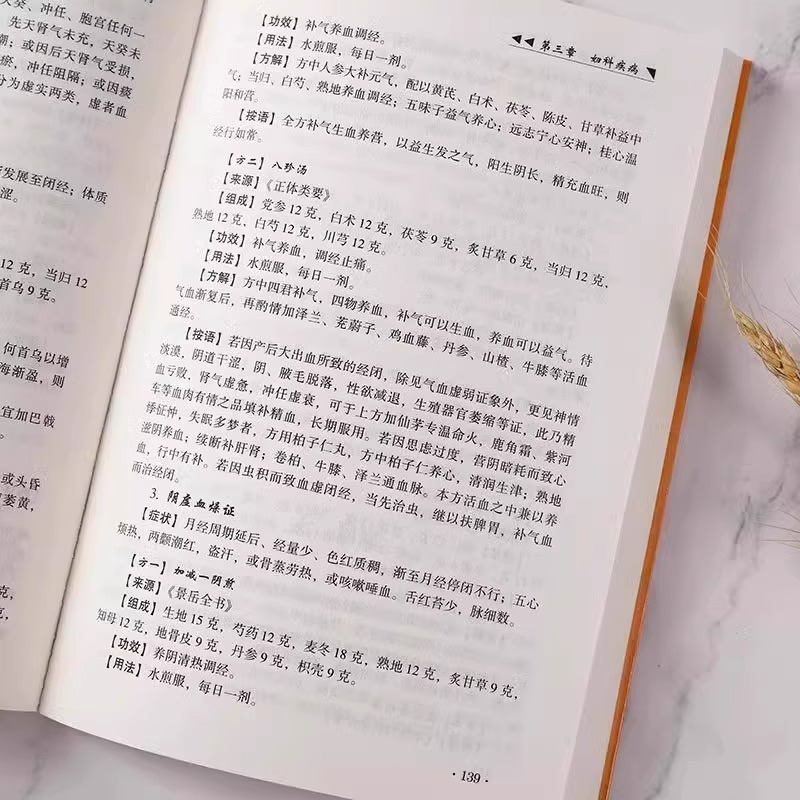 天癸、冲任、胞宫任何一
先天肾气未充，天癸未
潮；或因后天肾气受损，
虚，冲任阻隔；或因痰
分为虚实两类，虚者血
发展至闭经；体质
涩。
12 克，当归 12
首乌 9 克。
何首乌以增
海渐盈，则
宜加巴戟
或头昏
萎黄，
克，
克。
◀◀ 第三章 妇科疾病
【功效】补气养血调经。
【用法】水煎服，每日一剂。
【方解】方中人参大补元气，配以黄芪、白术、茯苓、陈皮、甘草补益中
气；当归、白芍、熟地养血调经；五味子益气养心；远志宁心安神；桂心温
阳和营。
【按语】全方补气生血养营，以益生发之气，阳生阴长，精充血旺，则
经行如常。
【方二】八珍汤
【来源】《正体类要》
【组成】党参 12 克，白术 12 克，茯苓 9 克，炙甘草 6 克，当归 12 克，
熟地 12 克，白芍 12 克，川芎 12 克。
【功效】补气养血，调经止痛。
【用法】水煎服，每日一剂。
【方解】方中四君补气，四物养血，补气可以生血，养血可以益气。待
气血渐复后，再酌情加泽兰、茺蔚子、鸡血藤、丹参、山楂、牛膝等活血
通经。
【按语】若因产后大出血所致的经闭，除见气血虚弱证象外，更见神情
淡漠，阴道干涩，阴、腋毛脱落，性欲减退，生殖器官萎缩等证，此乃精
血亏败，肾气虚惫，冲任虚衰，可于上方加仙茅专温命火，鹿角霜、紫河
车等血肉有情之品填补精血，长期服用。若因思虑过度，营阴暗耗而致心
悸怔忡，失眠多梦者，方用柏子仁丸，方中柏子仁养心，清润生津；熟地
滋阴养血；续断补肝肾；卷柏、牛膝、泽兰通血脉。本方活血之中兼以养
血，行中有补。若因虫积而致血虚闭经，当先治虫，继以扶脾胃，补气血
而治经闭。
3. 阴虚血燥证
【症状】月经周期延后、经量少、色红质稠，渐至月经停闭不行；五心
烦热，两颧潮红，盗汗，或骨蒸劳热，或咳嗽唾血。舌红苔少，脉细数。
【方一】加减一阴煎
【来源】《景岳全书》
【组成】生地 15 克，芍药 12 克，麦冬 18 克，熟地 12 克，炙甘草 9 克，
知母 12 克，地骨皮 9 克，丹参 9 克，枳壳 9 克。
【功效】养阴清热调经。
【用法】水煎服，每日一剂。
· 139 ·